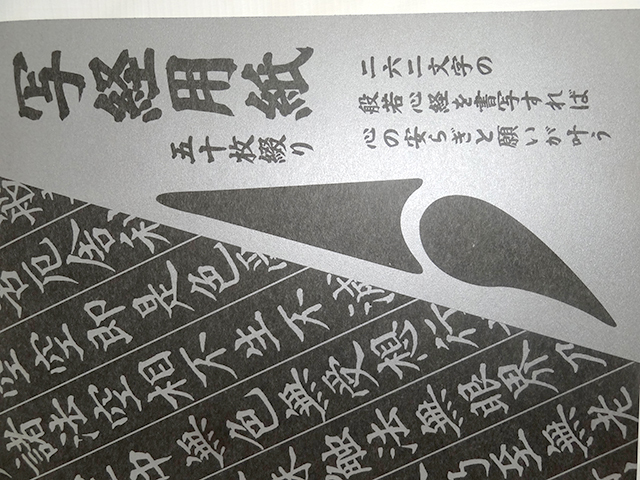 写経用紙
五十枚綴り
二六二文字の
般若心経を書写すれば
心の安らぎと願いが叶う
苦厄舎利
空空即是色
諸法空相不生不滅
中無色無受想行
触法無眼界乃
乃至無老